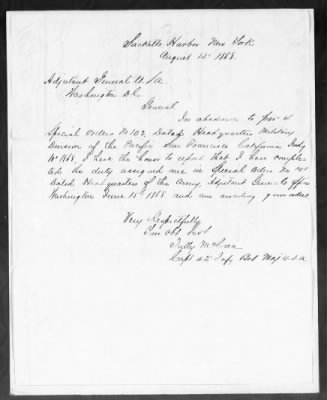 Sacketts Harbor New York
August 12th 1868.
Adjutant General U.S.A.
Washington D.C.
General
In obedience to par 4
Special Orders No 102, Dated Headquarters Military
Division of the Pacific San Francisco California July
1868, I have the honor to report that I have complet
ed the duty assigned me in Special Orders No
Dated Headquarters of the Army, Adjutant Generals Office
Washington June 15th 1868 and am awaiting further orders
Very Respectfully
Your Obt Servt
Tully McCrea
Capt 42 Inf. Bvt Maj U.S.A.